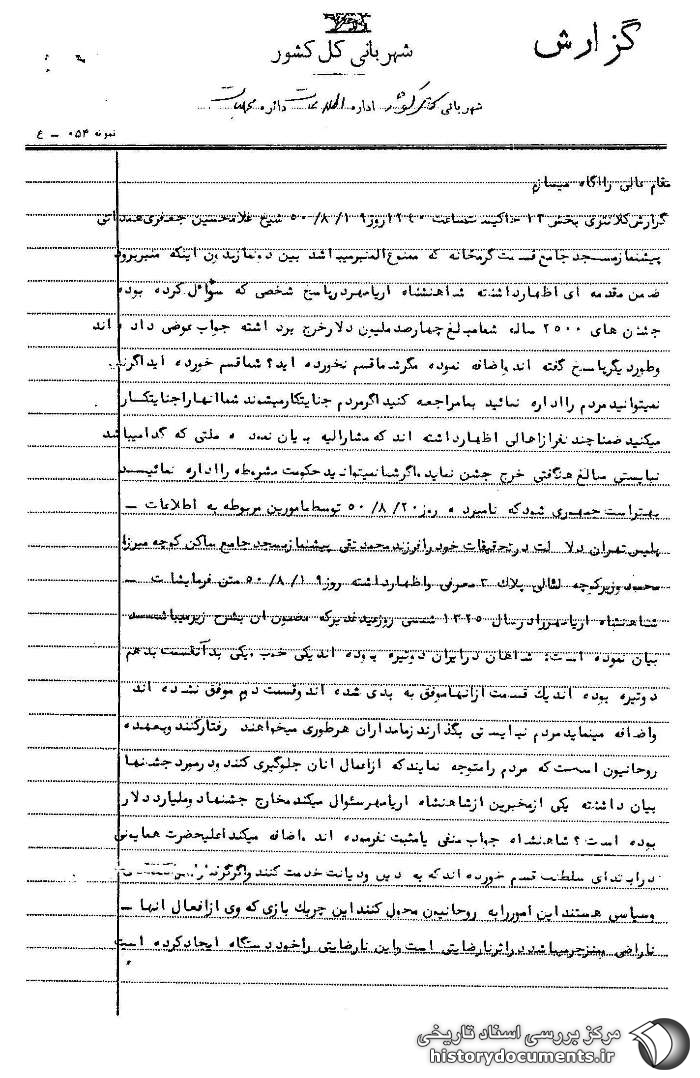 گزارش
شهربانی کل کشور
شهربانی کل کشور اداره اطلاعات دائره
نمونه ۰۵۴ – ع
مقام عالی را آگاه میسازم
گزارش کلانتری بخش ۱۳ حاکیست ساعت ۱۹۴۰ روز ۱۹/ ۸/ ۵۰ شیخ غلامحسین جعفری همدانی
پیشنماز مسجد جامع قسمت گرمخانه که ممنوع المنبر میباشد بین دو نماز بدون اینکه منبر برود
ضمن مقدمه ای اظهار داشته شاهنشاه اریامهر در پاسخ شخصی که سوال کرده بوده
جشن های ۲۵۰۰ ساله شما مبلغ چهارصد ملیون دلار خرج برداشته جواب عوضی داده اند
و طور دیگر پاسخ گفته اند و اضافه نموده مگر شما قسم نخورده اید؟ شما قسم خورده اید اگر
نمیتوانید مردم را اداره نمائید بما مراجعه کنید اگر مردم جنایتکار میشوند شما انها را جنایتکار
میکنید ضمنا چند نفر از اهالی اظهار داشته اند که مشارالیه بیان نموده ملتی که گدا میباشد
نبایستی مبالغ هنگفتی خرج جشن نماید اگر شما نمیتوانید حکومت مشروطه را اداره نمائید
بهتر است جمهوری شود که نامبرده روز ۲۰/ ۸/ ۵۰ توسط مامورین مربوطه به اطلاعات –
پلیس تهران دلالت در تحقیقات خود را فرزند محمد تقی پیشنماز مسجد جامع ساکن کوچه میرزا
محمود وزیر کوچه لثالی پلاک ۳ معرفی و اظهار داشته روز ۱۹/ ۸/ ۵۰ متن فرمایشات –
شاهنشاه اریامهر را در سال ۱۳۲۵ شمسی روز عید غدیر که مضمون ان بشرح زیر میباشد
بیان نموده است: شاهان در ایران دو تیره بوده اند یکی خوب و یکی بد آنقسمت بد هم
دو تیره بوده اند یک قسمت از انها موفق به بدی شده اند و قسمت دوم موفق نشده اند
و اضافه مینماید مردم نبایستی بگذارند زمامداران هر طوری میخواهند رفتار کنند و بعهده
روحانیون است که مردم را متوجه نمایند که از اعمال انان جلوگیری کنند و در مورد جشنها
بیان داشته یکی از مخبرین از شاهنشاه اریامهر سئوال میکند مخارج جشنها دو ملیارد دلار
بوده است؟ شاهنشاه جواب منفی یا مثبت نفرموده اند اضافه میکند اعلیحضرت همایونی
در ابتدای سلطنت قسم خورده اند که به دین و دیانت خدمت کنند و اگر
و سیاسی هستند این امور را به روحانیون محول کنند این چریک بازی که وی از افعال انها –
ناراضی و منزجر میباشد در اثر نارضایتی است و این نارضایتی را خود دستگاه ایجاد کرده است
مرکز بررسی اسناد تاریخی
historydocuments.ir